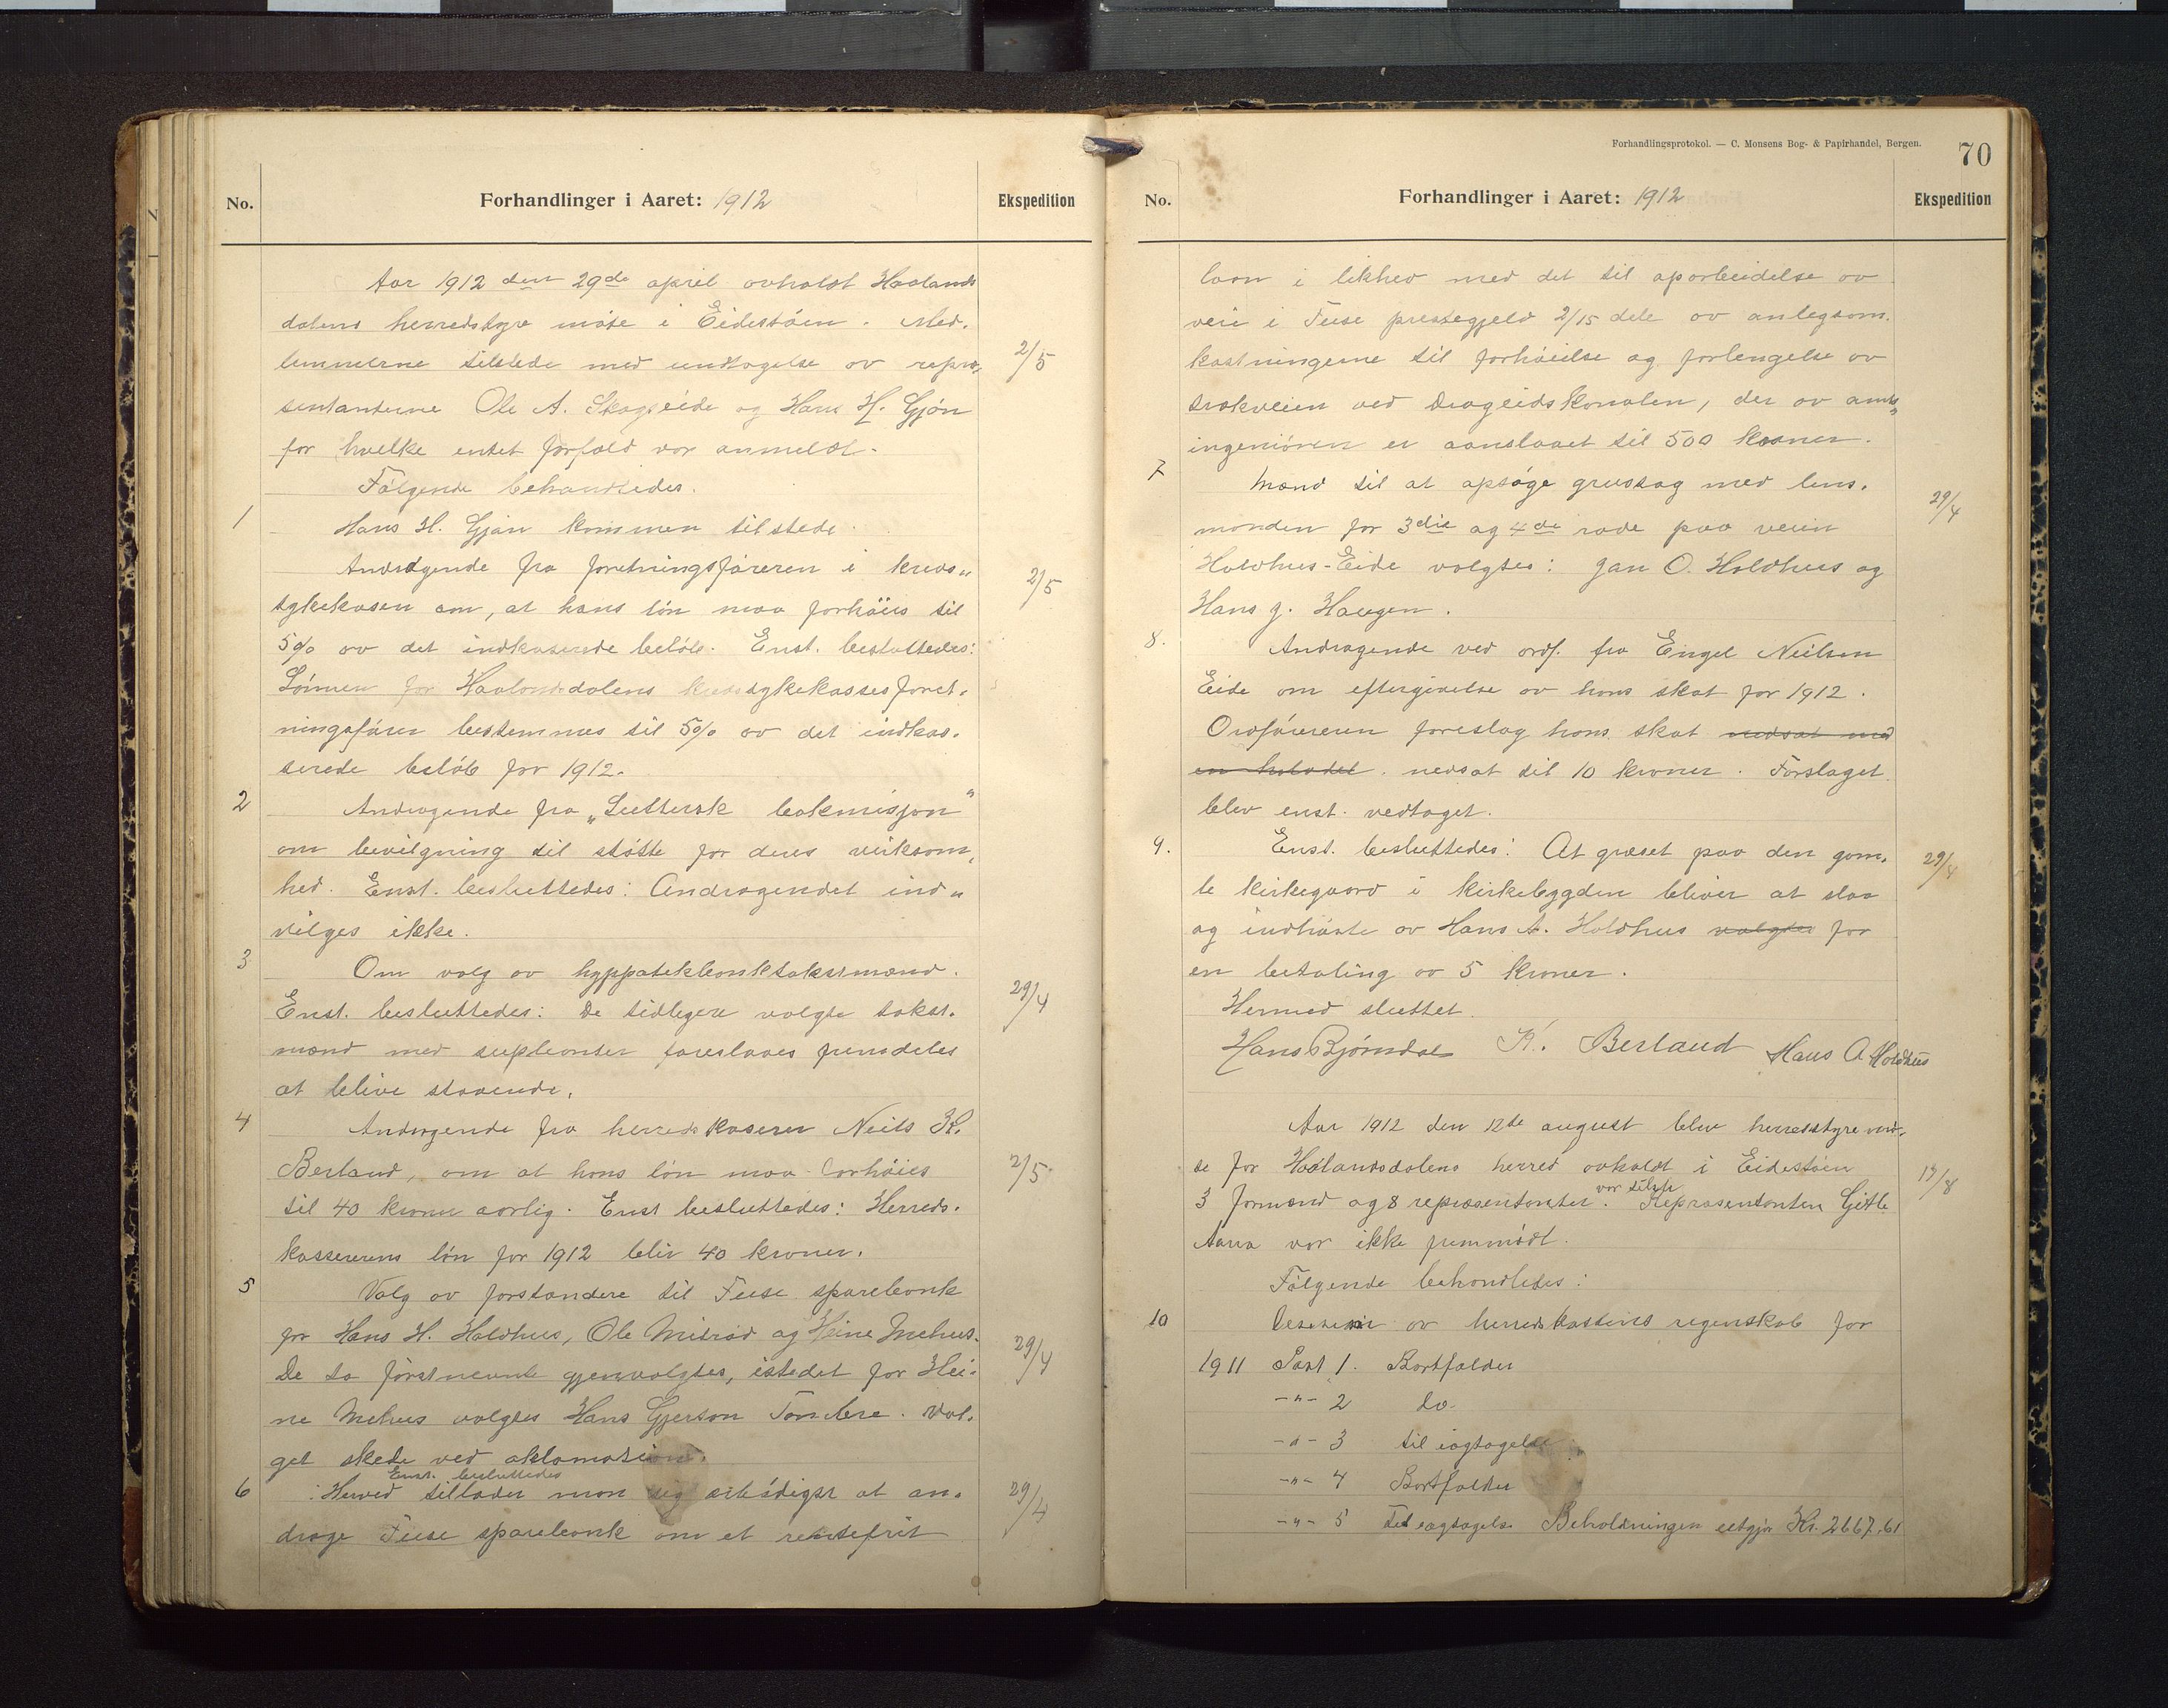 No.
Forhandlinger i Aaret: 1912
Ekspedition
Aar 1912 den 29de april avholdt Haalands
dalens herredstyre møte i Eidestøen. Med.
lemmerne tilstede med undtagelse av repræ,
sentanterne Ole A. Skogseide og Hans H. Gjøn
for hvelke entet forfald var anmeldt.
2/5
Følgende behandledes.
1
Hans H. Gjøn kommen tilstede.
Andragende fra forretningsføreren i kreds„
sykekasen om, at hans løn maa forhøies til
5% av det indkaserede beløb. Enst. besluttedes:
2/5
Lønnen for Haalandsdalens kredssykekasses foret.
ningsfører bestemmes til 5% av det indkas.
serede beløb for 1912.
2
Andragende fra „Luthersk bokmisjon"
om bevilgning til støtte for deres virksom,
hed. Enst. besluttedes: Andragendet ind„
vilges ikke.
3
Om valg av hyppotekbanktakstmænd.
Enst. besluttedes: De tidligere valgte takst.
29/4
mænd med supleanter foreslaaes fremdeles
at blive staaende.
4
Andragende fra herredskaserer Neils K.
Berland, om at hans løn maa forhøies
2/5
til 40 kroner aarlig. Enst besluttedes: Herreds.
kassererens løn for 1912 bliv 40 kroner.
5
Valg av forstandere til Fuse sparebank
for Hans H. Holdhus, Ole Midrød og Heine Mehus.
De to førstnevnte gjenvalgtes, istedet for Hei-
29/4
ne Mehus valgtes Hans Gjerson Tombre. Val.
get skede ved aklamation.
6
Enst. besluttedes
: Herved tillader man sig ærbødigst at an.
29/4
drage Fuse sparebank om et rentefrit
Forhandlingsprotokol. — C. Monsens Bog- & Papirhandel, Bergen.
70
No.
Forhandlinger i Aaret: 1912
Ekspedition
laan i likhed med det til oparbeidelse av
veie i Fuse prestegjeld 2/15 dele av anlegsom.
kostningerne til forhøielse og forlengelse av
trækveien ved Drageidskanalen, der av amts„
ingeniøren er aanslaaet til 500 kroner.
7
Mænd til at opsøge grustag med lens.
manden for 3die og 4de rode paa veien
29/4
Holdhus-Eide valgtes: Jan O. Holdhus og
Hans J. Haugen.
8.
Andragende ved ordf. fra Engel Neilsen
Eide om eftergivelse av hans skat for 1912.
Ordføreren foreslog hans skat nedsat med
en halvdel. nedsat til 10 kroner. Forslaget
blev enst. vedtaget.
9.
Enst. besluttedes: At græset paa den gam.
le kirkegaard i kirkebygden bliver at slaa
29/4
og indhøste av Hans A. Holdhus valgtes for
en betaling av 5 kroner.
Hermed sluttet.
Hans Bjørndal K. Berland Hans A. Holdhus
Aar 1912 den 12te august blev herredsstyremø-
te for Haalandsdalens herred avholdt i Eidestøen
13/8
3 formænd og 8 repræsentanter var tilste. Repræsentanten Gitle
Aarra var ikke fremmødt.
Følgende behandledes:
10
Decisioner av herredskassens regnskab for
1911 Post 1. Bortfalder
-"- 2 do.
-"- 3 til iagtagelse
-"- 4 Bortfalder
-"- 5 Til iagtagelse Beholdningen utgjør Kr. 2667,61